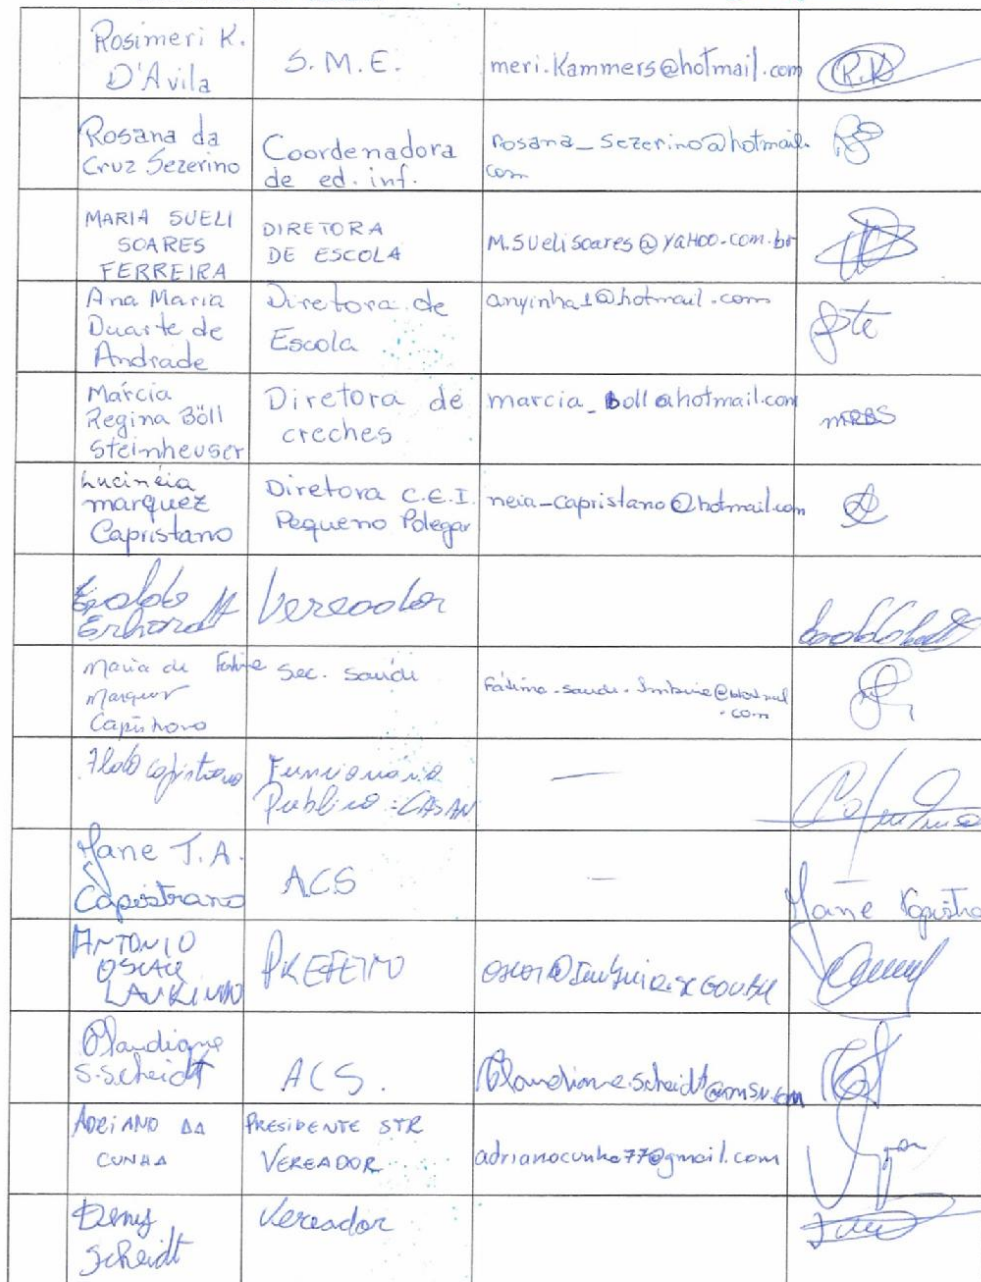 Rosimeri K.
D'Avila
S.M.E.
meri.Kammers@hotmail.com
R.K
Rosana da
Cruz Sezerino
Coordenadora
de ed. inf.
rosana_sezerino@hotmail.
com
MARIA SUELI
SOARES
FERREIRA
DIRETORA
DE ESCOLA
M.SUELISOARES@YAHOO.COM.br
Ana Maria
Duarte de
Andrade
Diretora de
Escola
anyinha1@hotmail.com
Márcia
Regina Böll
Steinheuser
Diretora de
creches
marcia_boll@hotmail.com
MRBS
Lucinéia
marquez
Capistrano
Diretora C.E.I.
Pequeno Polegar
neia-capristano@hotmail.com
Erhardt
Vereador
Maria de
Marques
Sec. Saúde
Capistrano
Funcionario
Publico = CASAN
—
Jane T.A.
Capistrano
ACS
—
Jane
ANTONIO
OSCAR
LAURINDO
PREFEITO
S.Scheidt
ACS.
ADRIANO DA
CUNHA
PRESIDENTE STR
VEREADOR
adrianocunha77@gmail.com
Deny
Scheidt
Vereador